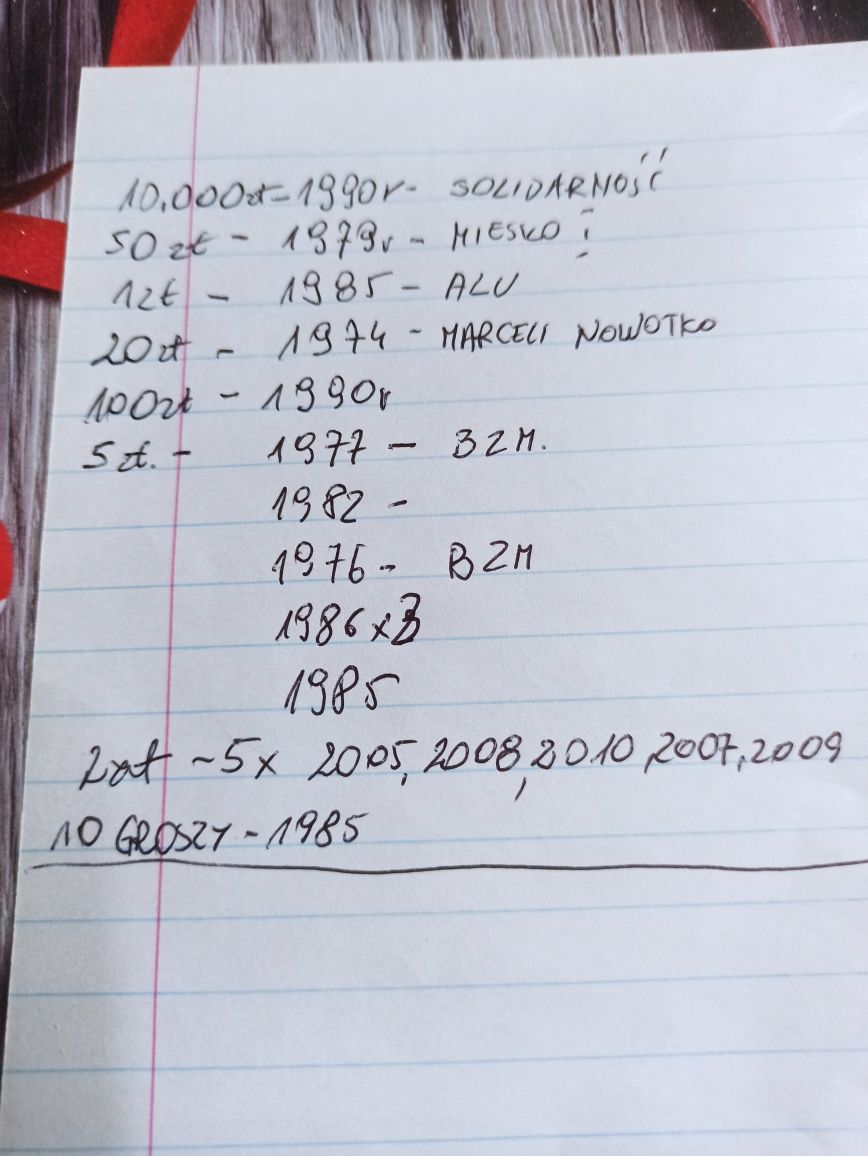 10.000zł-1990r- SOLIDARNOŚĆ
50zł - 1979r - MIESKO I
1zł - 1985 - ALU
20zł - 1974 - MARCELI NOWOTKO
100zł - 1990r
5zł. - 1977 - BZM.
1982 -
1976 - BZM
1986x3
1985
2zł - 5x 2005, 2008, 2010, 2007, 2009
10 GROSZY - 1985